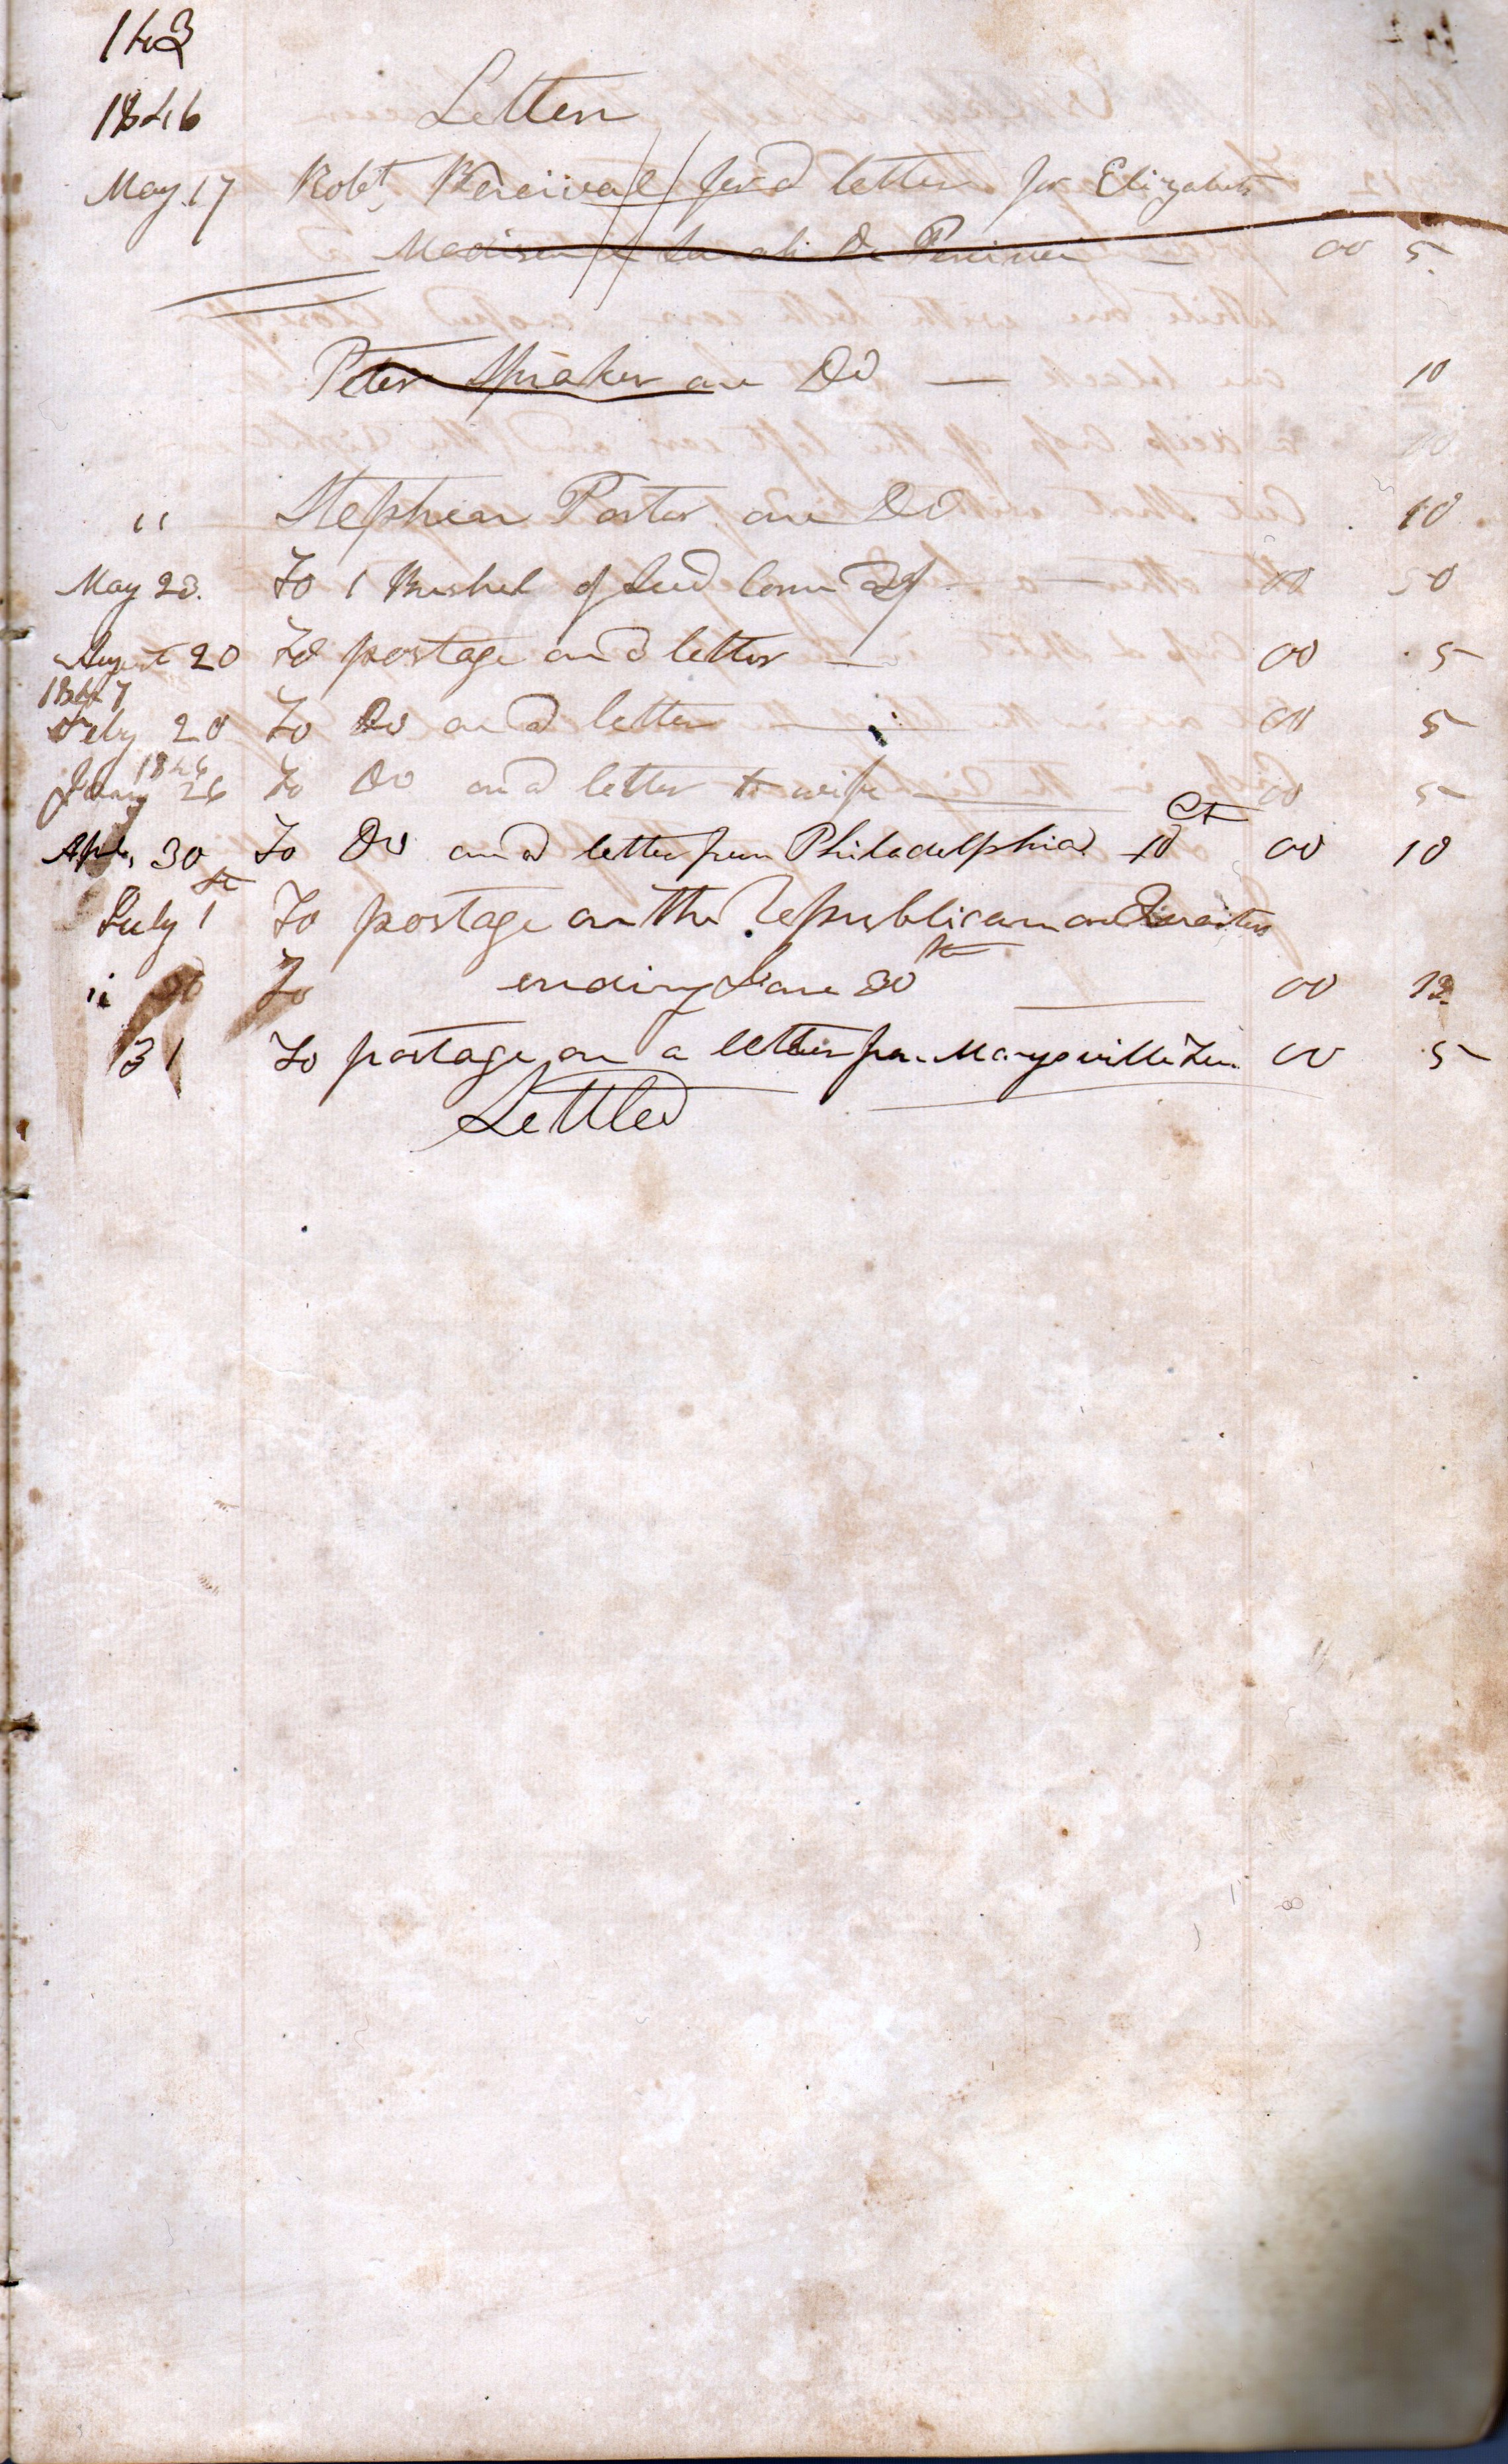 143
1846 Letters
May 17 Robt Percival ford letter for Elizabeth
Madison & Sarah Do 00 5
Peter Spraker one Do 10
" Stephen Porter one Do 10
May 23. To 1 Bushel of seed corn 00 50
August 20 To postage and letter 00 5
1847
Feby 20 To Do and letter 00 5
1846
January 26 To Do and letter to wife 00 5
Apl. 30 To Do and letter from Philadelphia 10 ct 00 10
July 1st To postage on the Republican one Quarter
" To ending June 30th 00 13
31 To postage on a letter from Marysville Ten. 00 5
Settled